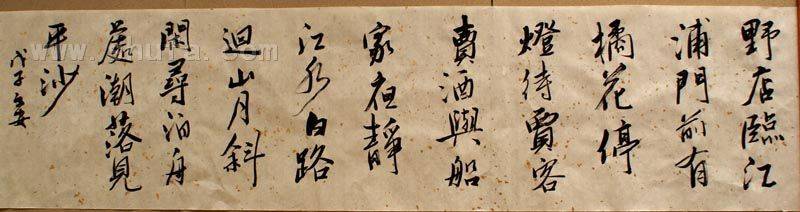 野店臨江
浦門前有
橘花停
燈待賈客
賣酒與船
家夜靜
江水白路
迴山月斜
閑尋泊舟
處潮落見
平沙
戊子